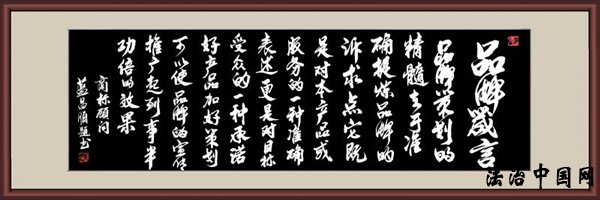 品牌箴言
品牌策划的
精髓在于准
确提炼品牌的
诉求点它既
是对本产品或
服务的一种准确
表述更是对目标
受众的一种承诺
好产品加好策划
可以使品牌的宣传
推广起到事半
功倍的效果
商标顾问
蓝昌顺题书
法治中国网